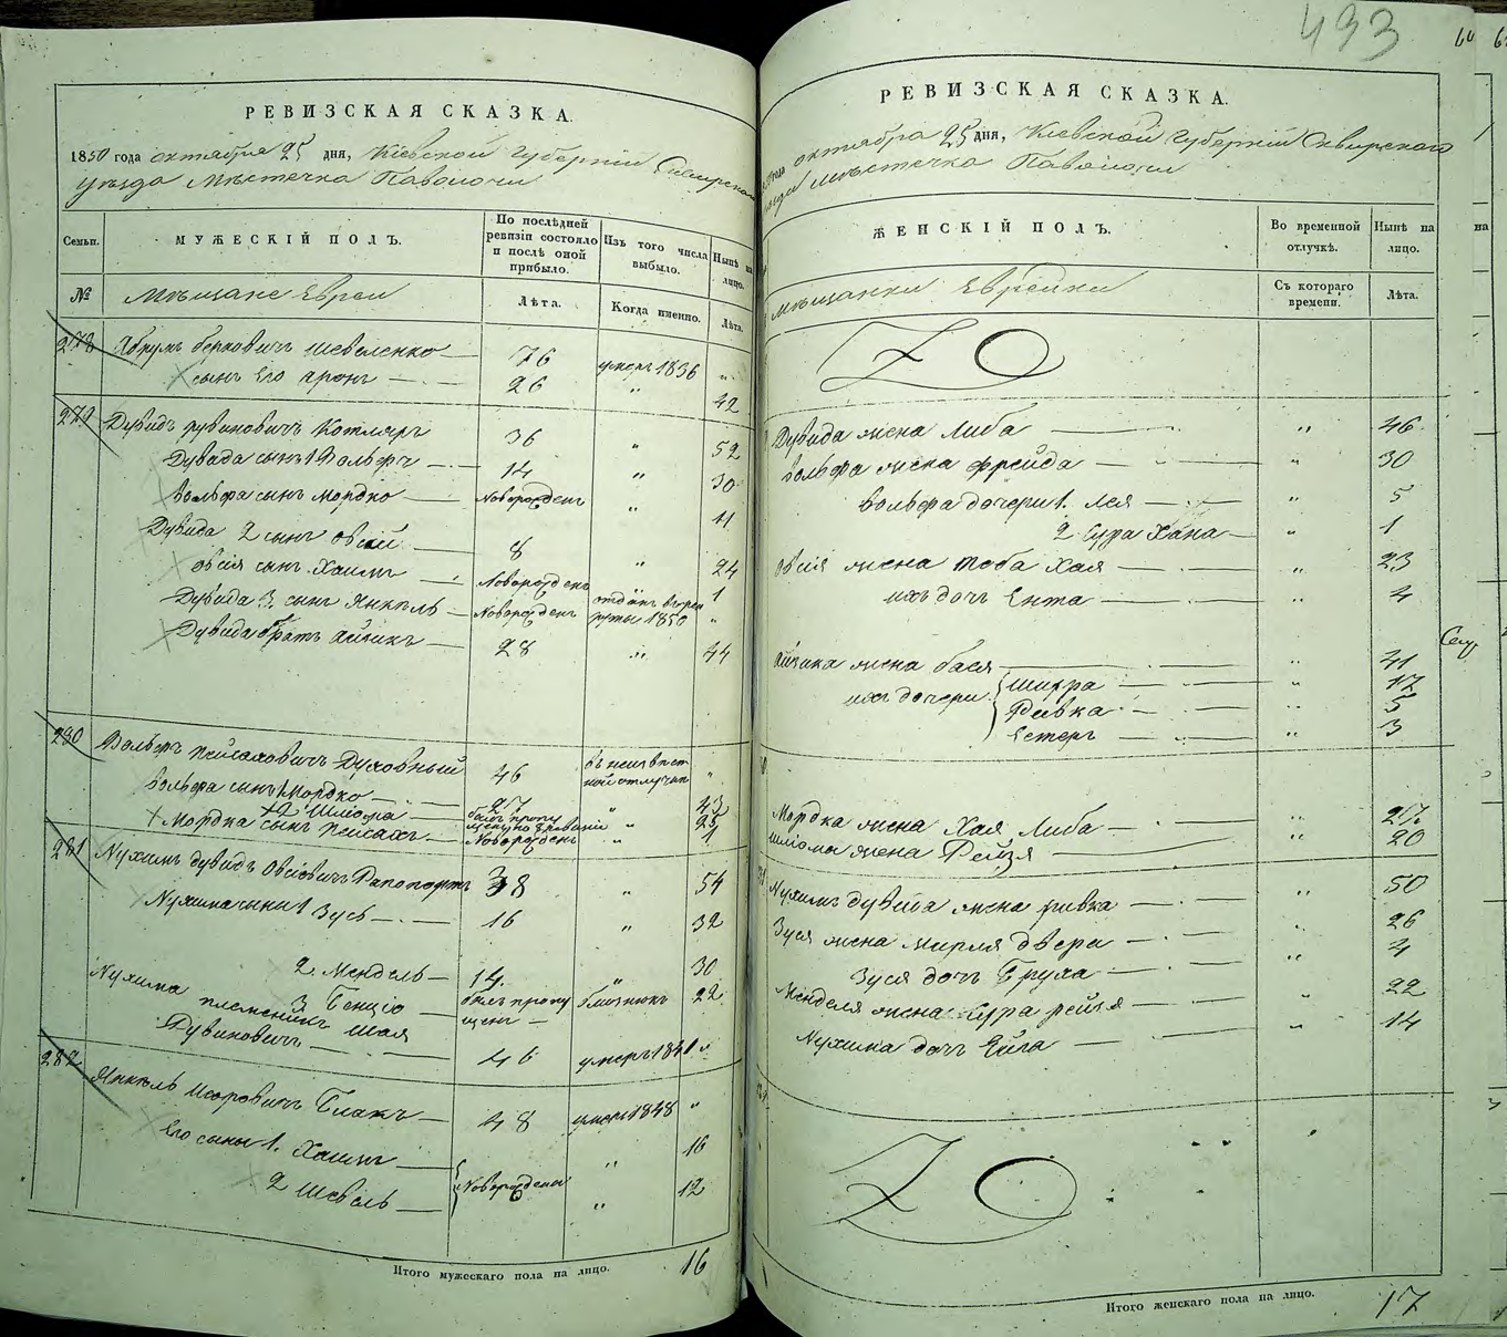 РЕВИЗСКАЯ СКАЗКА.
1850 года октября 25 дня, Кіевской Губерніи Сквирскаго
уѣзда Мѣстечка Паволочи
Семьи.
МУЖЕСКІЙ ПОЛЪ.
По послѣдней ревизіи состояло и послѣ оной прибыло.
Изъ того числа выбыло.
Нынѣ на лицо.
№
Мѣщане Евреи
Лѣта.
Когда именно.
Лѣта.
278 Абрумъ берковичъ Шевеленко 76 умеръ 1836 "
сынъ его Аронъ 26 " 42
279 Дувидъ рувиновичъ Котляръ 36 " 52
Дувида сынъ 1 Вольфъ 14 " 30
Вольфа сынъ Мордко Новорожденъ " 11
Дувида 2 сынъ Овсій 8 " 24
Овсія сынъ Хаимъ Новорожденъ 1
Дувида 3. сынъ Янкель Новорожденъ отданъ въ рекруты 1850 "
Дувида братъ Айзикъ 28 " 44
280 Вольфъ Пейсаховичъ Духовный 46 въ неизвѣстной отлучкѣ "
Вольфа сынъ 1 Мордко 27 " 43
2 Шліома былъ пропущенъ " 25
Мордка сынъ Пейсахъ Новорожденъ " 1
281 Нухимъ дувидъ Овсіовичъ Рапопортъ 38 " 54
Нухима сыны 1 Зусь 16 " 32
2. Мендель 14. " 30
3 Бенціо былъ пропущенъ близнюкъ 22
Нухима племенникъ Шая
Дувиновичъ 46 умеръ 1841 "
282 Янкель Іосіовичъ 48 умеръ 1848 "
Его сыны 1. Хаимъ Новорождены " 16
2 Шевель " 12
Итого мужескаго пола на лицо. 16
493
РЕВИЗСКАЯ СКАЗКА.
года октября 25 дня, Кіевской Губерніи Сквирскаго
уѣзда Мѣстечка Паволочи
ЖЕНСКІЙ ПОЛЪ.
Во временной отлучкѣ.
Нынѣ на лицо.
Мѣщанки Еврейки
Съ котораго времени.
Лѣта.
Дувида жена Либа " 46
Вольфа жена Фрейда " 30
Вольфа дочери 1. Лея " 5
2 Сура Хана " 1
Овсія жена Тоба Хая " 23
ихъ дочь Ента " 4
Айзика жена бася " 41
ихъ дочери Шифра " 17
Ривка " 5
Естеръ " 3
Мордка жена Хая Либа " 27
Шліома жена Рейзя " 20
Нухимъ дувида жена ривка " 50
Зуся жена Мирля двера " 26
Зуся дочь Бруха " 4
Менделя жена Сура рейзя " 22
Нухима дочь Ейга " 14
Итого женскаго пола на лицо. 17